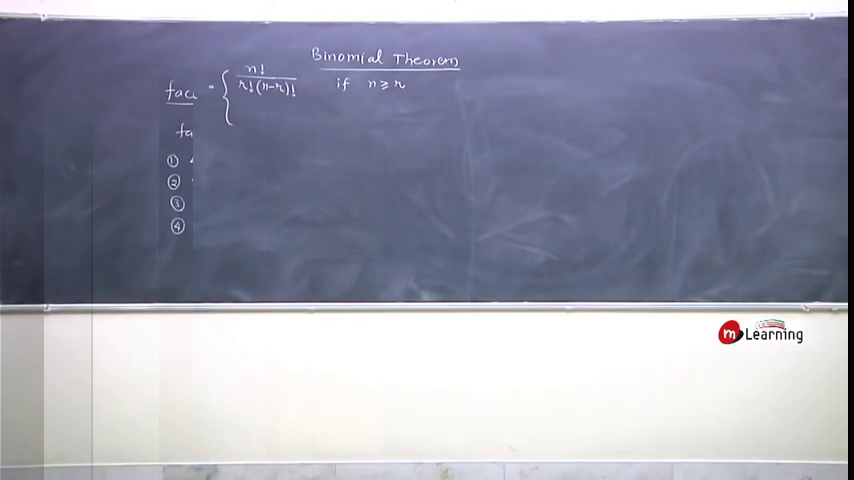 Binomial Theorem
= { n! / r!(n-r)! if n ≥ r
fa
①
②
③
④
m Learning